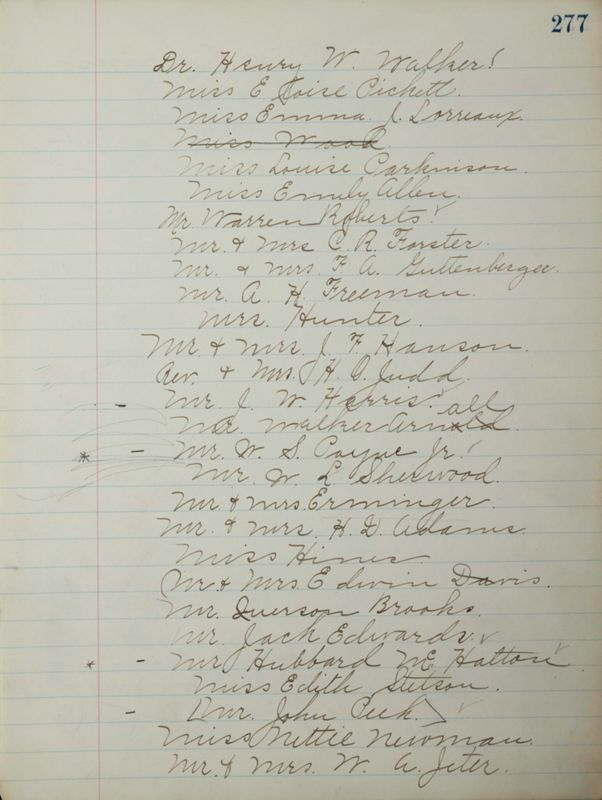 277
Dr. Henry W. Walker!
Miss Eloise Pickett.
Miss Emma J. Lorreaux.
Miss Wood
Miss Louise Parkinson.
Miss Emily Allen.
Mr. Warren Roberts
Mr. & Mrs C. R. Forster.
Mr. & Mrs. F. A. Guttenberger.
Mr. A. H. Freeman.
Mrs. Hunter.
Mr. & Mrs. J. F. Hanson.
Rev. & Mrs. H. O. Judd.
Mr. J. W. Harris.
Mr. Walker all
* - Mr. W. S. Payne Jr.
Mr. W. L Sherwood.
Mr. & Mrs. Erminger.
Mr. & Mrs. H. D. Adams.
Miss Hines
Mr. & Mrs. Edwin Davis.
Mr. Brooks.
Mr. Jack Edwards.
* - Mr. Hubbard Hatton
Miss Edith Stetson.
- Mr. John Peek
Miss Nettie Newman.
Mr. & Mrs. W. A. Jeter.